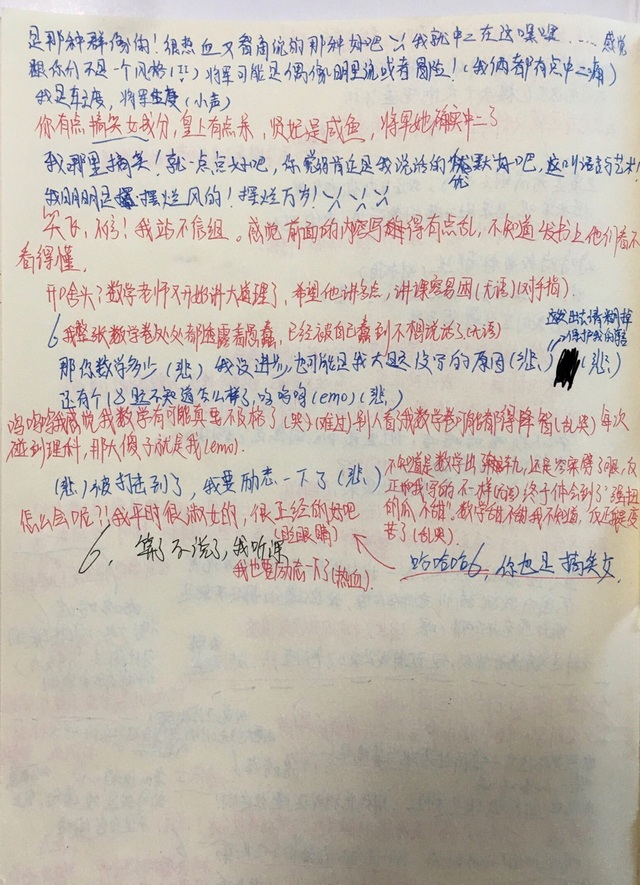 是那种群像的！很热血又智商统的那种好吧 我就中二在这嘿嘿……感觉
跟你们不是一个风格(!!) 将军可能是偶像剧里说或者冒险！(我俩都有点中二病)
我是车速度，将军生度（小声）
你有点搞笑女成分，皇上有点呆，贤妃是咸鱼，将军她确实中二了
我那里搞笑！就一点点好吧，你觉得肯定是我说话的幽默好吧，这叫语言艺术！
我明明是摆烂风的！摆烂万岁！
笑飞，不信！我站不信组。感觉前面的内容写得有点乱，不知道发书上他们看不
看得懂。
开口舍头了数学老师又开始讲大道理了，希望他讲轻点，讲课容易困(无语)(对手指)
6 我整张数学卷处处都透露着愚蠢，已经被自己蠢到不想说话了(无语)
那你数学多少（悲）我没进步，也可能是我大题没写的原因（悲）（悲）
这处让我涂掉
保护我的
还有个18题不知道怎么样了，呜呜呜(emo)（悲）
呜呜呜我感觉我数学有可能真要不及格了(哭)(难过)别人看了我数学卷可能都得降智(乱哭) 每次
碰到理科，那大傻子就是我(emo).
（悲）被打击到了，我要励志一下了（悲）
不知道是数学出轨，还是答案劈了腿，反
正和我写的不一样(无语) 终于体会到了"强扭
的瓜不甜"。数学甜不甜我不知道，反正我是变
苦了(乱哭)。
怎么会呢?!我平时很淑女的，很正经的好吧
(眨眼睛)
6，算了不说了，我听课
我也要励志一下了(热血)
哈哈哈6，你也是搞笑女